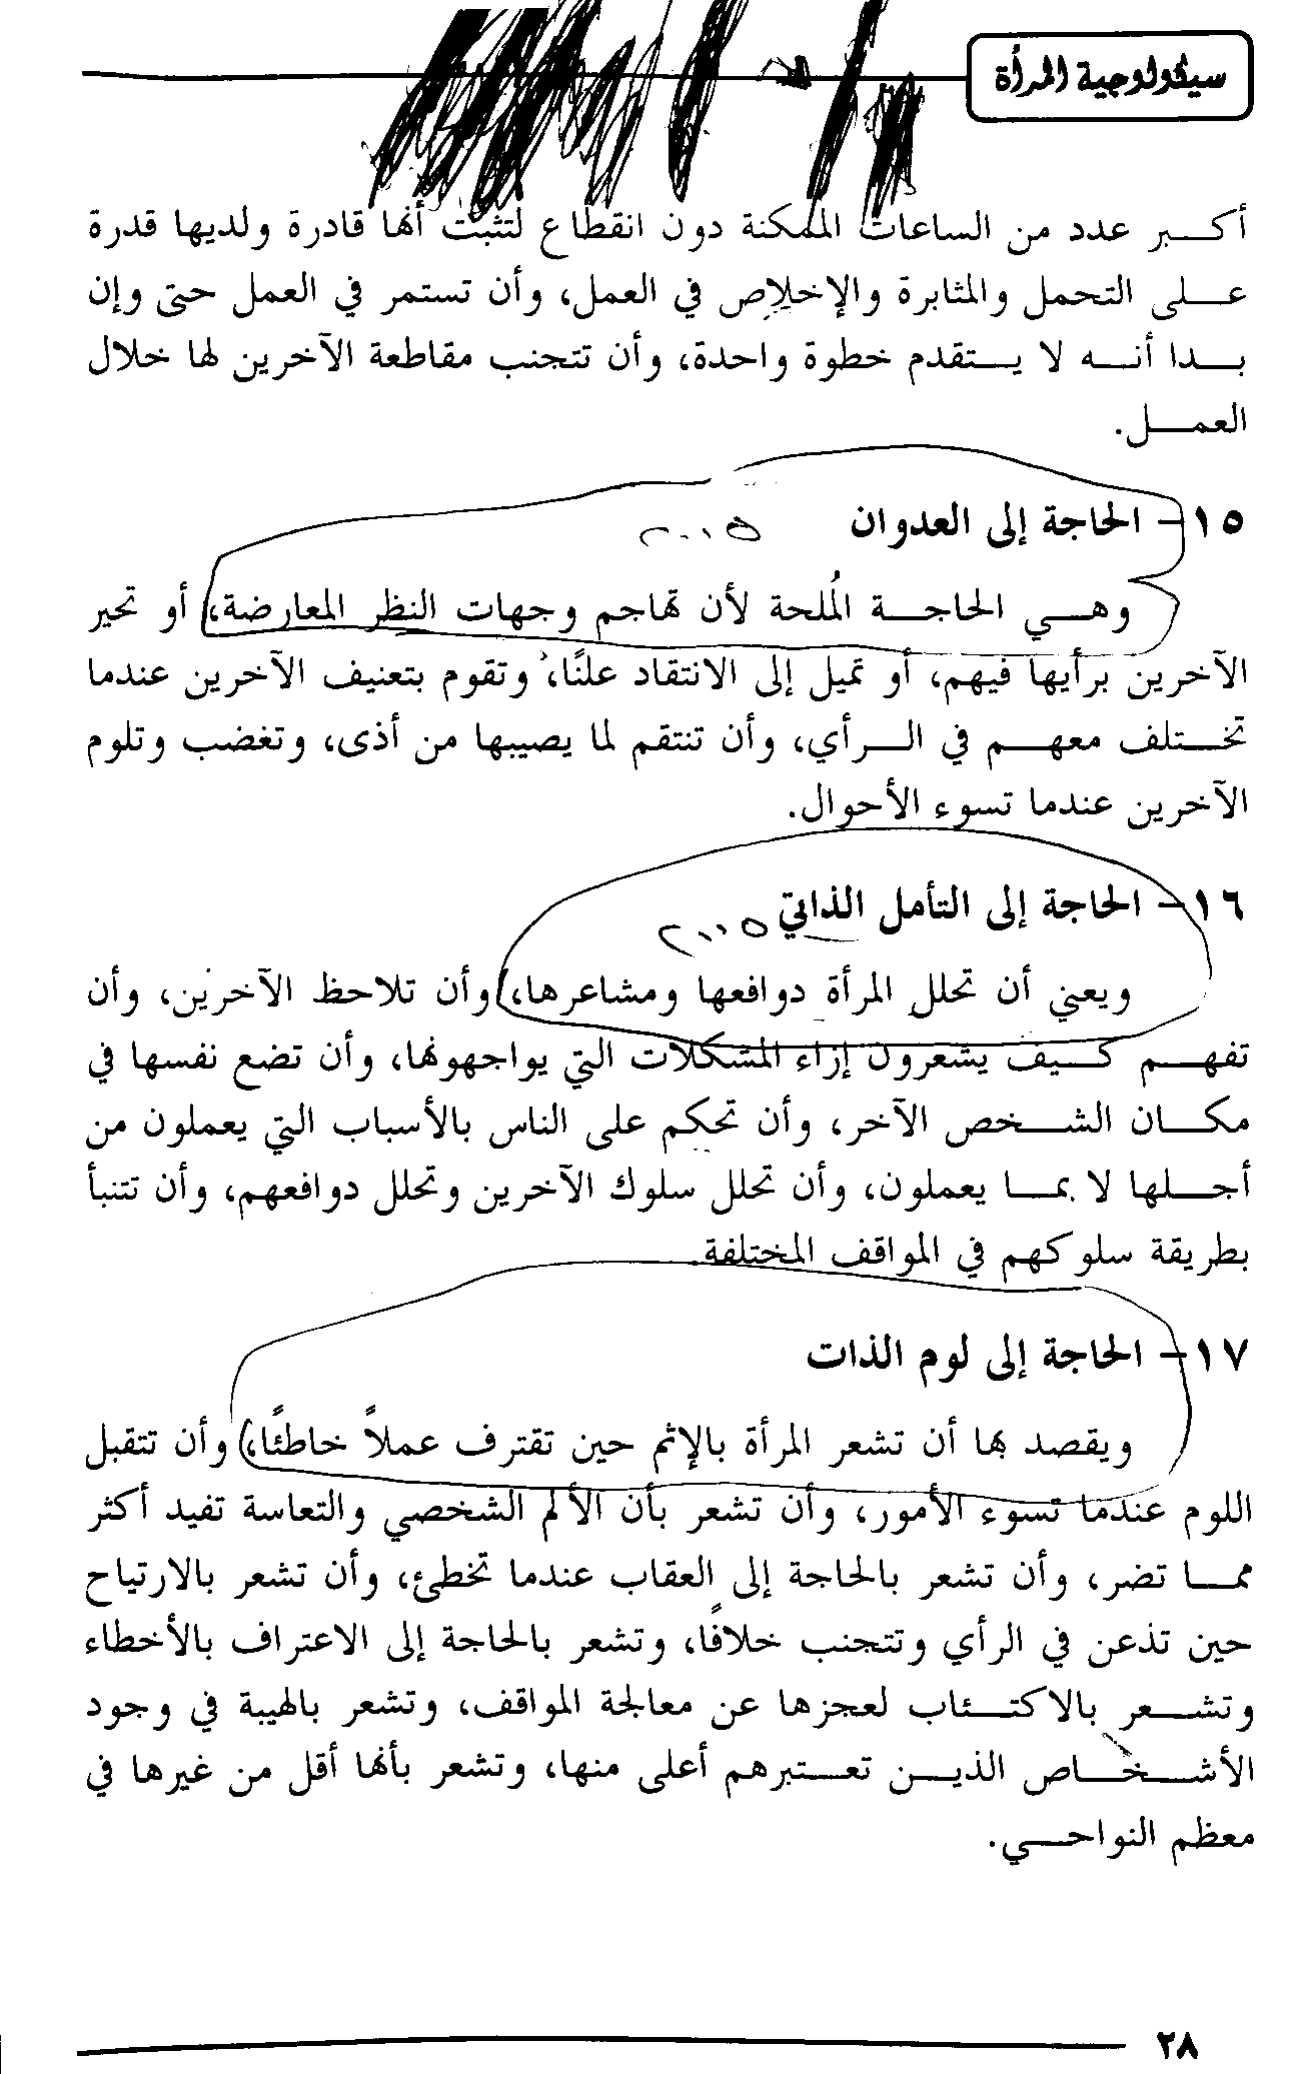 سيكولوجية المرأة
أكبر عدد من الساعات الممكنة دون انقطاع لتثبت أنها قادرة ولديها قدرة
على التحمل والمثابرة والإخلاص في العمل، وأن تستمر في العمل حتى وإن
بدا أنه لا يتقدم خطوة واحدة، وأن تتجنب مقاطعة الآخرين لها خلال
العمل.
١٥- الحاجة إلى العدوان
وهي الحاجة المُلحة لأن تهاجم وجهات النظر المعارضة، أو تخبر
الآخرين برأيها فيهم، أو تميل إلى الانتقاد علنًا، وتقوم بتعنيف الآخرين عندما
تختلف معهم في الرأي، وأن تنتقم لما يصيبها من أذى، وتغضب وتلوم
الآخرين عندما تسوء الأحوال.
١٦- الحاجة إلى التأمل الذاتي
ويعني أن تحلل المرأة دوافعها ومشاعرها، وأن تلاحظ الآخرين، وأن
تفهم كيف يشعرون إزاء المشكلات التي يواجهونها، وأن تضع نفسها في
مكان الشخص الآخر، وأن تحكم على الناس بالأسباب التي يعملون من
أجلها لا بما يعملون، وأن تحلل سلوك الآخرين وتحلل دوافعهم، وأن تتنبأ
بطريقة سلوكهم في المواقف المختلفة.
١٧- الحاجة إلى لوم الذات
ويقصد بها أن تشعر المرأة بالإثم حين تقترف عملاً خاطئًا، وأن تتقبل
اللوم عندما تسوء الأمور، وأن تشعر بأن الألم الشخصي والتعاسة تفيد أكثر
مما تضر، وأن تشعر بالحاجة إلى العقاب عندما تخطئ، وأن تشعر بالارتياح
حين تذعن في الرأي وتتجنب خلافًا، وتشعر بالحاجة إلى الاعتراف بالأخطاء
وتشعر بالاكتئاب لعجزها عن معالجة المواقف، وتشعر بالهيبة في وجود
الأشخاص الذين تعتبرهم أعلى منها، وتشعر بأنها أقل من غيرها في
معظم النواحي.
٢٨